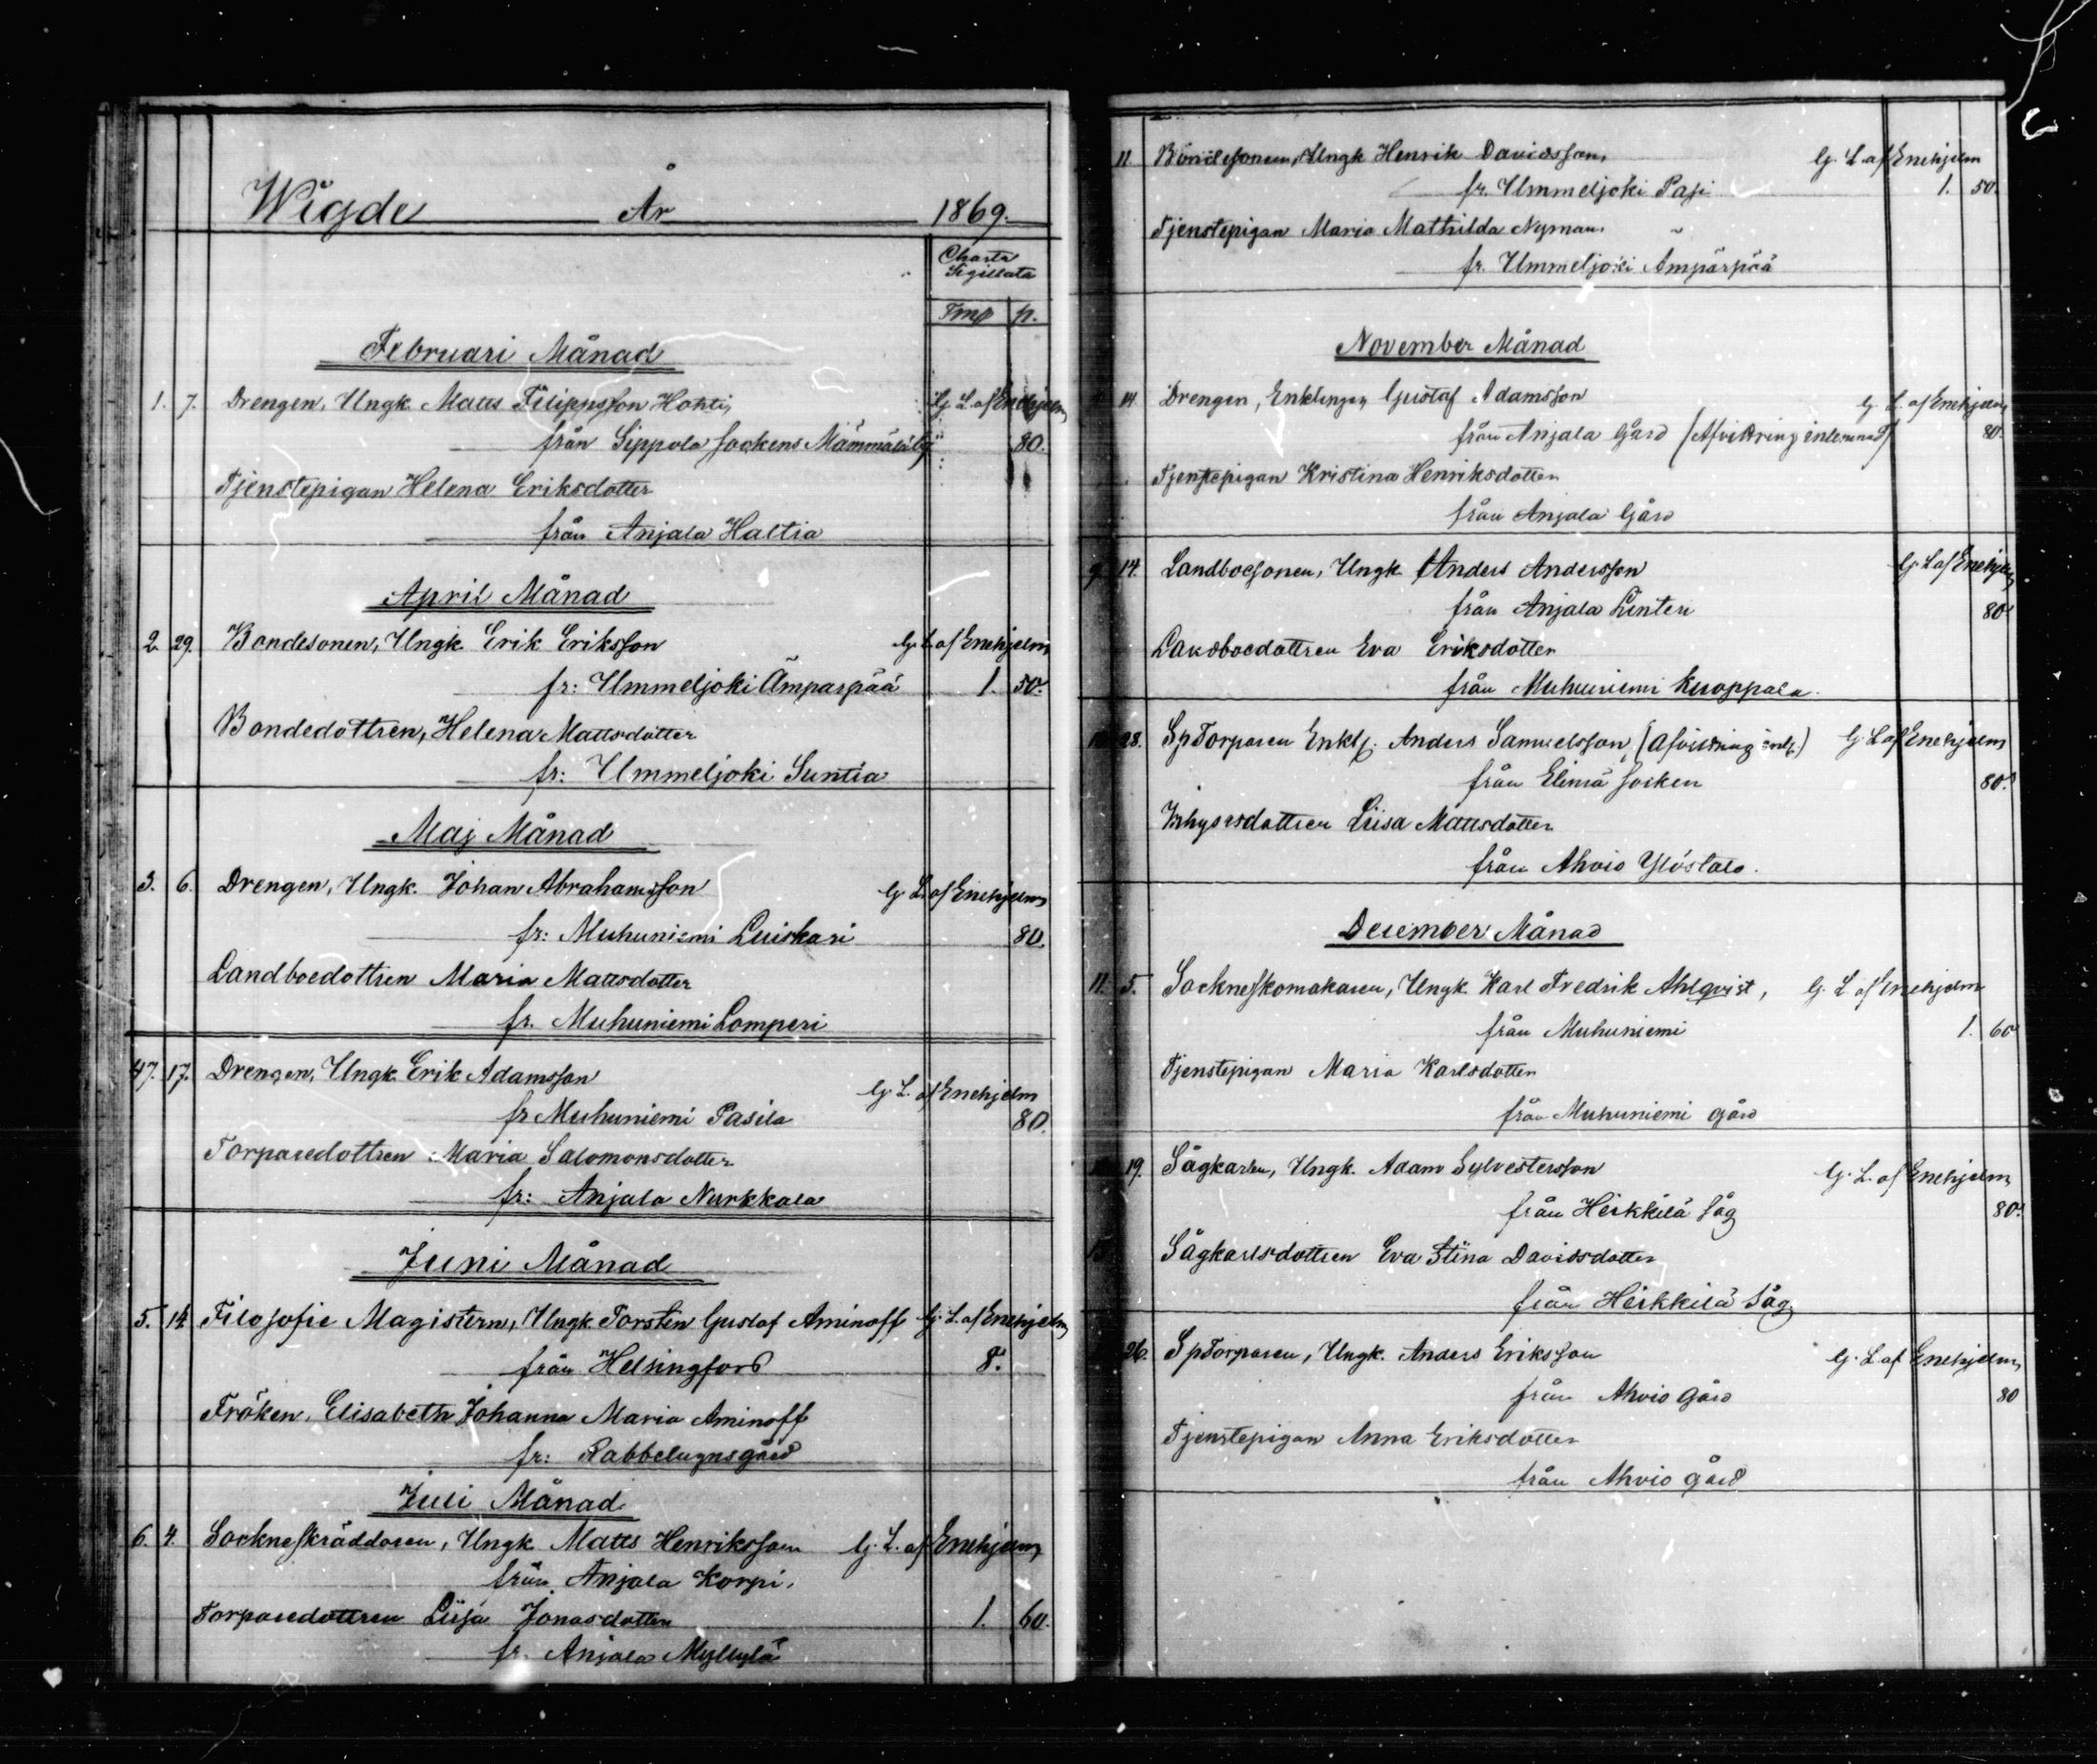 Wigde År 1869.
Charta
Sigillata
Fmk p.
Februari Månad
1. 7. Drengen, Ungk. Matts Filippsson Hohti, G. L. af Enehjelm
från Sippola sockens Mämmälä by 80.
Tjenstepigan Helena Eriksdotter
från Anjala Haltia
April Månad
2. 29. Bondesonen, Ungk. Erik Eriksson G. L. af Enehjelm
fr: Ummeljoki Ämpärpää 1. 50.
Bondedottren, Helena Mattsdotter
fr: Ummeljoki Suntia
Maj Månad
3. 6. Drengen, Ungk. Johan Abrahamsson G. L. af Enehjelm
fr: Muhuniemi Luiskari 80.
Landboedottren Maria Mattsdotter
fr. Muhuniemi Lomperi
47. 17. Drengen, Ungk. Erik Adamsson G. L. af Enehjelm
fr Muhuniemi Pasila 80.
Torparedottren Maria Salomonsdotter
fr: Anjala Nurkkala
Juni Månad
5. 14. Filosofie Magistern, Ungk. Torsten Gustaf Aminoff G. L. af Enehjelm
från Helsingfors 8.
Fröken, Elisabeth Johanna Maria Aminoff
fr: Rabbelugnsgård
Juli Månad
6. 4. Sockneskräddaren, Ungk. Matts Henriksson G. L. af Enehjelm
från Anjala Korpi.
Torparedottren Liisa Jonasdotter 1. 60.
fr. Anjala Myllylä
11 Bondesonen, Ungk Henrik Davidsson, G. L. af Enehjelm
fr. Ummeljoki Pasi 1. 50.
Tjenstepigan Maria Mathilda Nyman
fr. Ummeljoki Ämpärpää
November Månad
14. Drengen, Enklingen Gustaf Adamsson G. L. af Enehjelm
från Anjala Gård (Afvittring inlemnad) 80.
Tjenstepigan Kristina Henriksdotter
från Anjala Gård
9. 14. Landboesonen, Ungk. Anders Andersson G. L af Enehjelm
från Anjala Linteri 80.
Landboedottren Eva Eriksdotter
från Muhuniemi Knoppala.
28. SpTorparen Enkl. Anders Samuelsson, (Afvittring inl.) G. L af Enehjelm
från Elimä socken 80.
Inhysesdottren Liisa Mattsdotter
från Ahvio Ylöstalo.
December Månad
11. 5. Sockneskomakaren, Ungk. Karl Fredrik Ahlqvist, G. L. af Enehjelm
från Muhuniemi 1. 60
Tjenstepigan Maria Karlsdotter
från Muhuniemi gård
19. Sågkarlen, Ungk. Adam Sylvestersson G. L. af Enehjelm
från Heikkilä såg 80.
Sågkarlsdottren Eva Stina Davidsdotter
från Heikkilä Såg
26. SpTorparen, Ungk. Anders Eriksson G. L. af Enehjelm
från Ahvio Gård 80
Tjenstepigan Anna Eriksdotter
från Ahvio gård